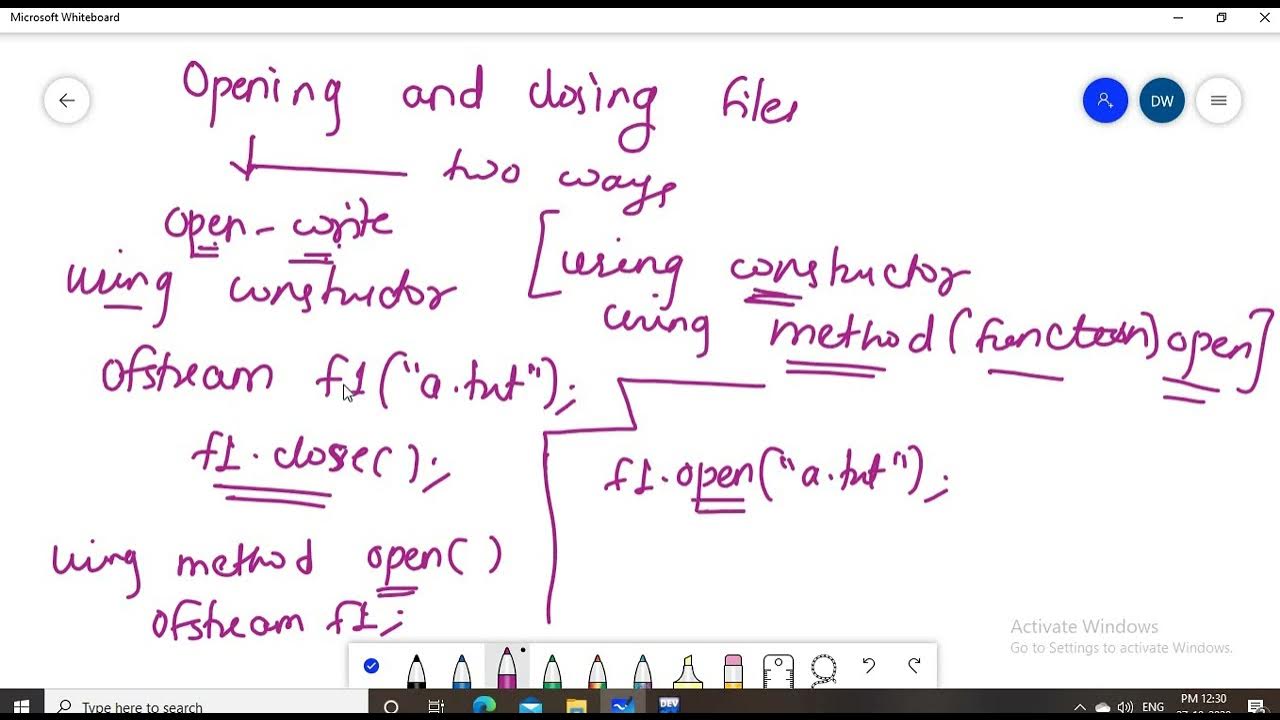 Microsoft Whiteboard
Opening and closing files
two ways
DW
open - write
using constructor
[using constructor
using method (function) open]
ofstream f1("a.txt");
f1.close();
f1.open("a.txt");
using method open()
ofstream f1;
Activate Windows
Go to Settings to activate Windows.
Type here to search
DEV
ENG
PM 12:30